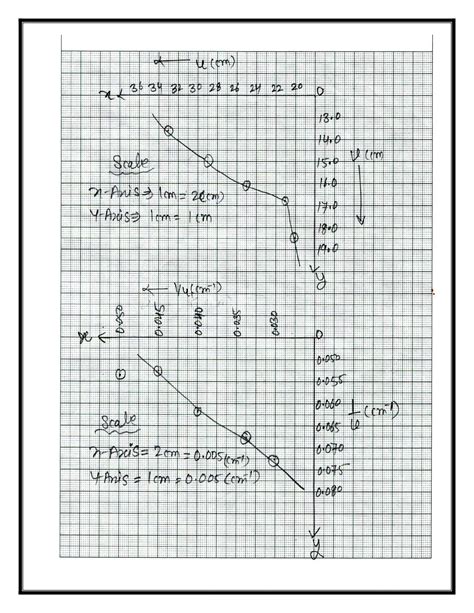 ← u (cm)
x ← 36 34 32 30 28 26 24 22 20 0
13.0
14.0
15.0
16.0
17.0
18.0
19.0
v cm
y
Scale
x-Axis ⇒ 1cm = 2(cm)
Y-Axis ⇒ 1cm = 1cm
← 1/u (cm⁻¹)
x ← 0.050 0.045 0.040 0.035 0.030 0
0.050
0.055
0.060
0.065
0.070
0.075
0.080
(cm⁻¹)
y
Scale
x-Axis = 2cm = 0.005 (cm⁻¹)
Y Axis = 1cm = 0.005 (cm⁻¹)